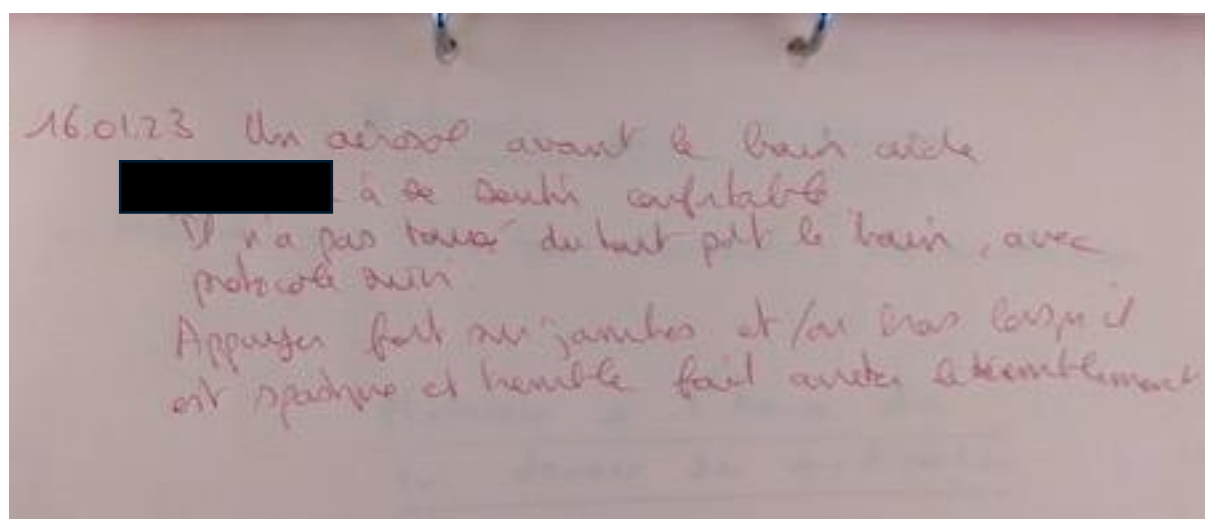 16.01.23 Un aérosol avant le bain aide
à se sentir confortable
Il n'a pas toussé du tout pdt le bain, avec
protocole suivi.
Appuyer fort sur jambes et/ou bras lorsqu'il
est spastique et tremble fait arrêter le tremblement